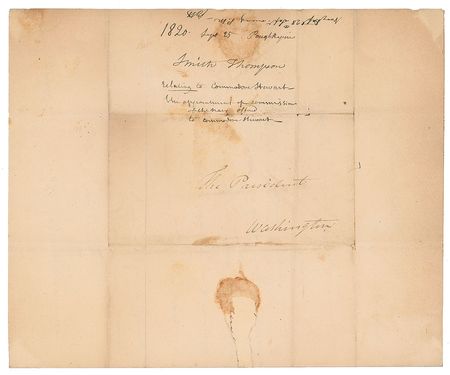 1820. Sept 25 Poughkeepsie
Smith Thompson
relating to Commodore Stewart
The appointment of commissioner
of the Navy
to commodore Stewart
The President
Washington